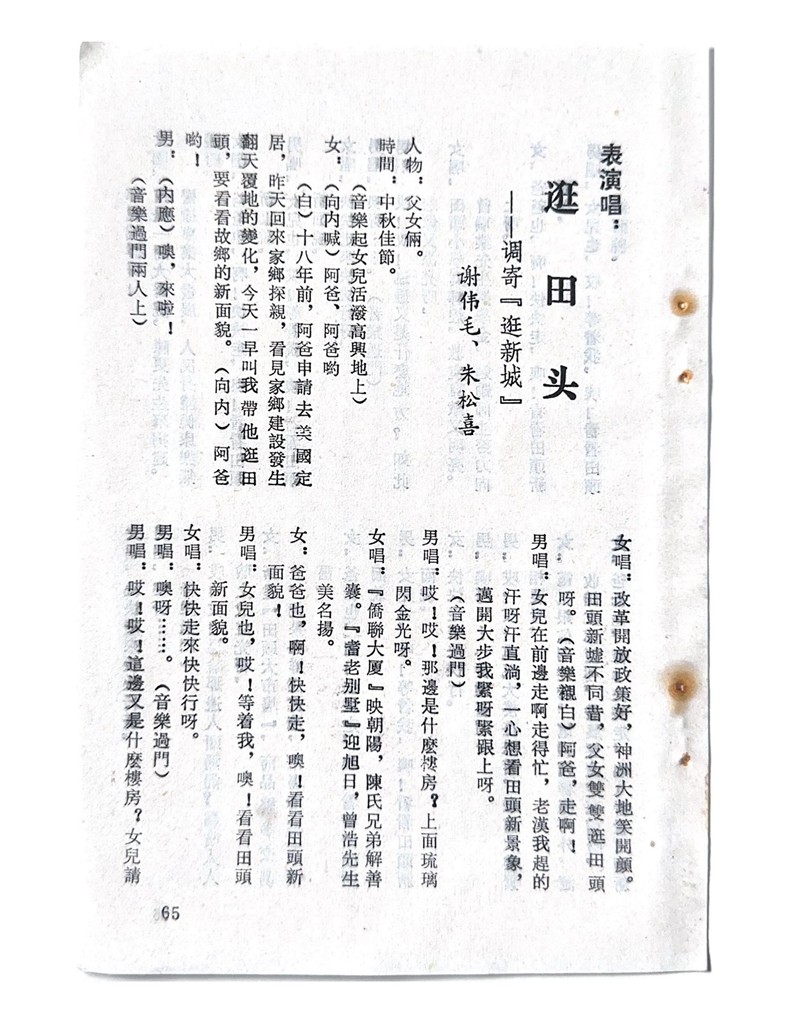 表演唱：
逛田头
——调寄『逛新城』
谢伟毛、朱松喜
人物：父女俩。
時間：中秋佳節。
（音樂起女兒活潑高興地上）
女：（向内喊）阿爸、阿爸哟
（白）十八年前，阿爸申請去美國定
居，昨天回來家鄉探親，看見家鄉建設發生
翻天覆地的變化，今天一早叫我帶他逛田
頭，要看看故鄉的新面貌。（向内）阿爸
哟！
男：（内應）噢，來啦！
（音樂過門兩人上）
女唱：改革開放政策好，神洲大地笑開顏。
田頭新墟不同昔，父女雙雙逛田頭
呀。（音樂襯白）阿爸，走啊！
男唱：女兒在前邊走啊走得忙，老漢我趕的
汗呀汗直淌，一心想看田頭新景象，
邁開大步我緊呀緊跟上呀。
（音樂過門）
男唱：哎！哎！那邊是什麽樓房？上面琉璃
閃金光呀。
女唱：『僑聯大厦』映朝陽，陳氏兄弟解善
囊。『耆老别墅』迎旭日，曾浩先生
美名揚。
女：爸爸也，啊！快快走，噢！看看田頭新
面貌！
男唱：女兒也，哎！等着我，噢！看看田頭
新面貌。
女唱：快快走來快快行呀。
男唱：噢呀……。（音樂過門）
男唱：哎！哎！這邊又是什麽樓房？女兒請
65